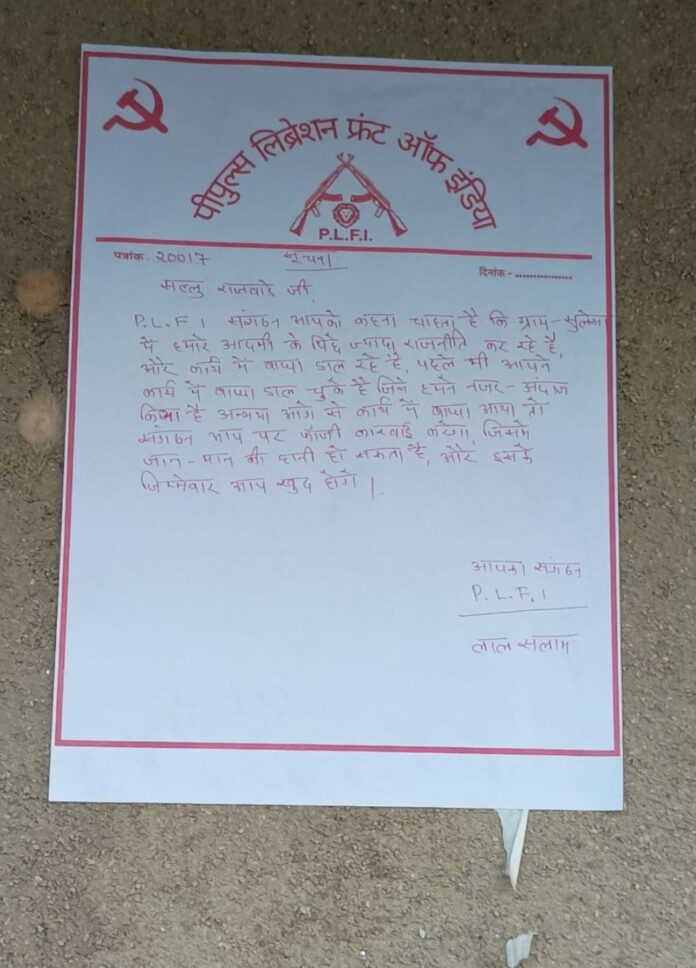 पीपुल्स लिब्रेशन फ्रंट ऑफ इंडिया
P.L.F.I.
पत्रांक - 20017
सूचना
दिनांक - ................
मल्लु राजवाडे जी,
P.L.F.I संगठन आपको कहना चाहता है कि ग्राम-
में हमारे आदमी के ज्यादा राजनीति कर रहे है,
और कार्य में बाधा डाल रहे है, पहले भी आपने
कार्य में बाधा डाल चुके है जिसे हमने नजर-अंदाज
किया है अन्यथा आगे से कार्य में बाधा आया तो
संगठन आप पर फौजी कारवाई करेगा, जिसमे
जान-मान की हानी हो सकता है, और इसके
जिम्मेवार आप खुद होगे |
आपका संगठन
P.L.F.I
लाल सलाम